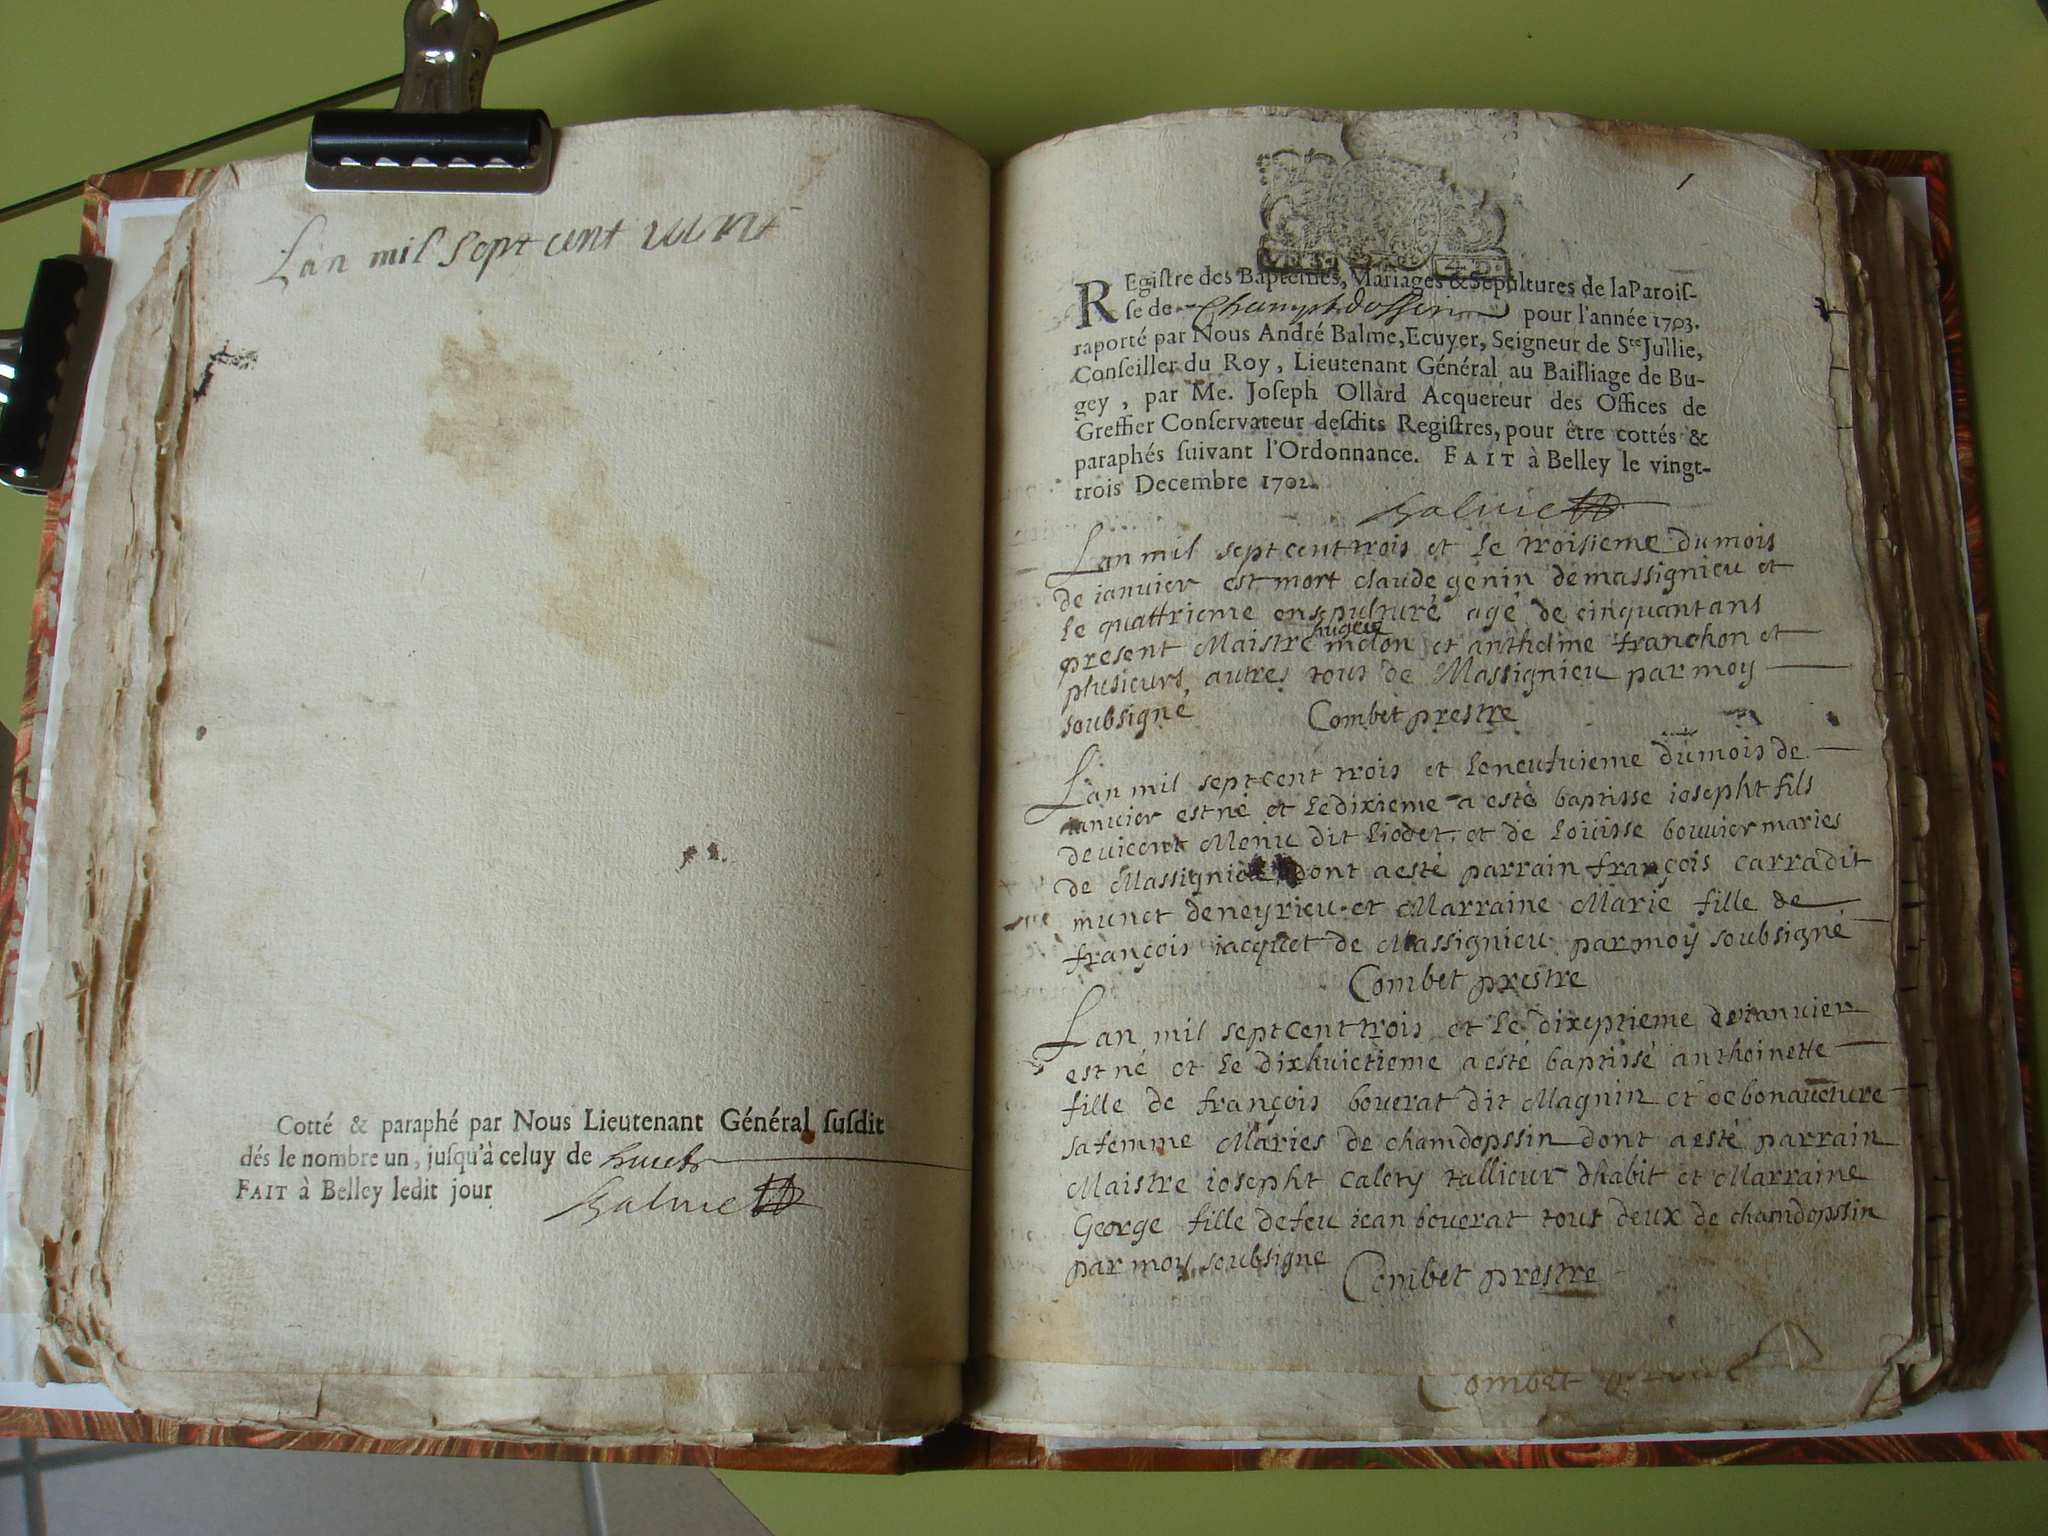 Lan mil sept cent
Cotté & paraphé par Nous Lieutenant Général ſuſdit
dés le nombre un, juſqu'à celuy de huict
FAIT à Belley ledit jour
Balme
1
REgiſtre des Baptêmes, Mariages & Sepultures de la Paroiſ-
ſe de Champtdossin pour l'année 1703.
raporté par Nous André Balme, Ecuyer, Seigneur de Ste Jullie,
Conſeiller du Roy, Lieutenant Général au Bailliage de Bu-
gey, par Me. Joſeph Ollard Acquereur des Offices de
Greffier Conſervateur deſdits Regiſtres, pour être cottés &
paraphés ſuivant l'Ordonnance. FAIT à Belley le vingt-
trois Decembre 1702.
Balme
Lan mil sept cent trois et le troisieme du mois
de ianvier est mort claude genin de massignieu et
le quattrieme ensepulturé agé de cinquant ans
present Maistre hugue melon et anthelme franchon et
plusieurs autres tous de Massignieu par moy
soubsigne Combet prestre
Lan mil sept cent trois et le neufuieme du mois de
ianvier est né et le dixieme a esté baptisse iosepht fils
de uicent Menu dit liodet et de louisse bouuier maries
de Massignieu dont a esté parrain françois carra dit
munet de neyrieu et Marraine Marie fille de
françois iacquet de Massignieu par moy soubsigné
Combet prestre
Lan mil sept cent trois et le dixeptieme de ianuier
est né et le dixhuictieme a esté baptissé anthoinette
fille de françois bouerat dit Magnin et de bonaueture
sa femme Maries de chamdopssin dont a esté parrain
Maistre iosepht calery tallieur dhabit et Marraine
George fille de feu iean bouerat tout deux de chamdopssin
par moy soubsigne Combet prestre
Combet